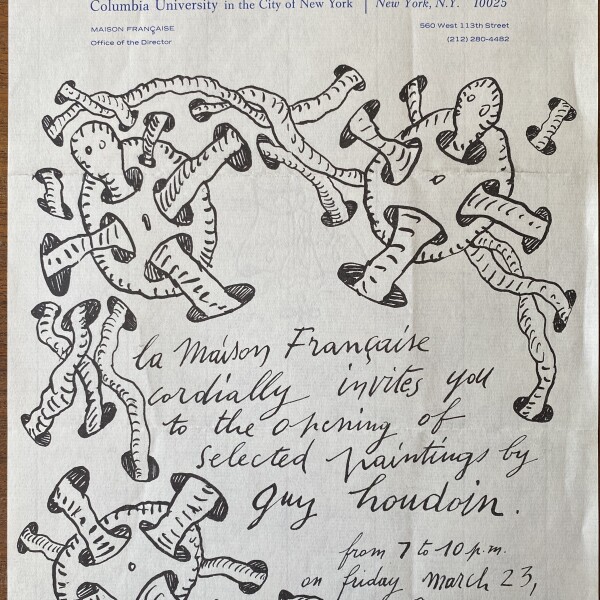 Columbia University in the City of New York | New York, N.Y. 10025
MAISON FRANÇAISE
Office of the Director
560 West 113th Street
(212) 280-4482
la Maison Française
cordially invites you
to the opening of
selected paintings by
guy houdoin.
from 7 to 10 p.m.
on friday march 23,